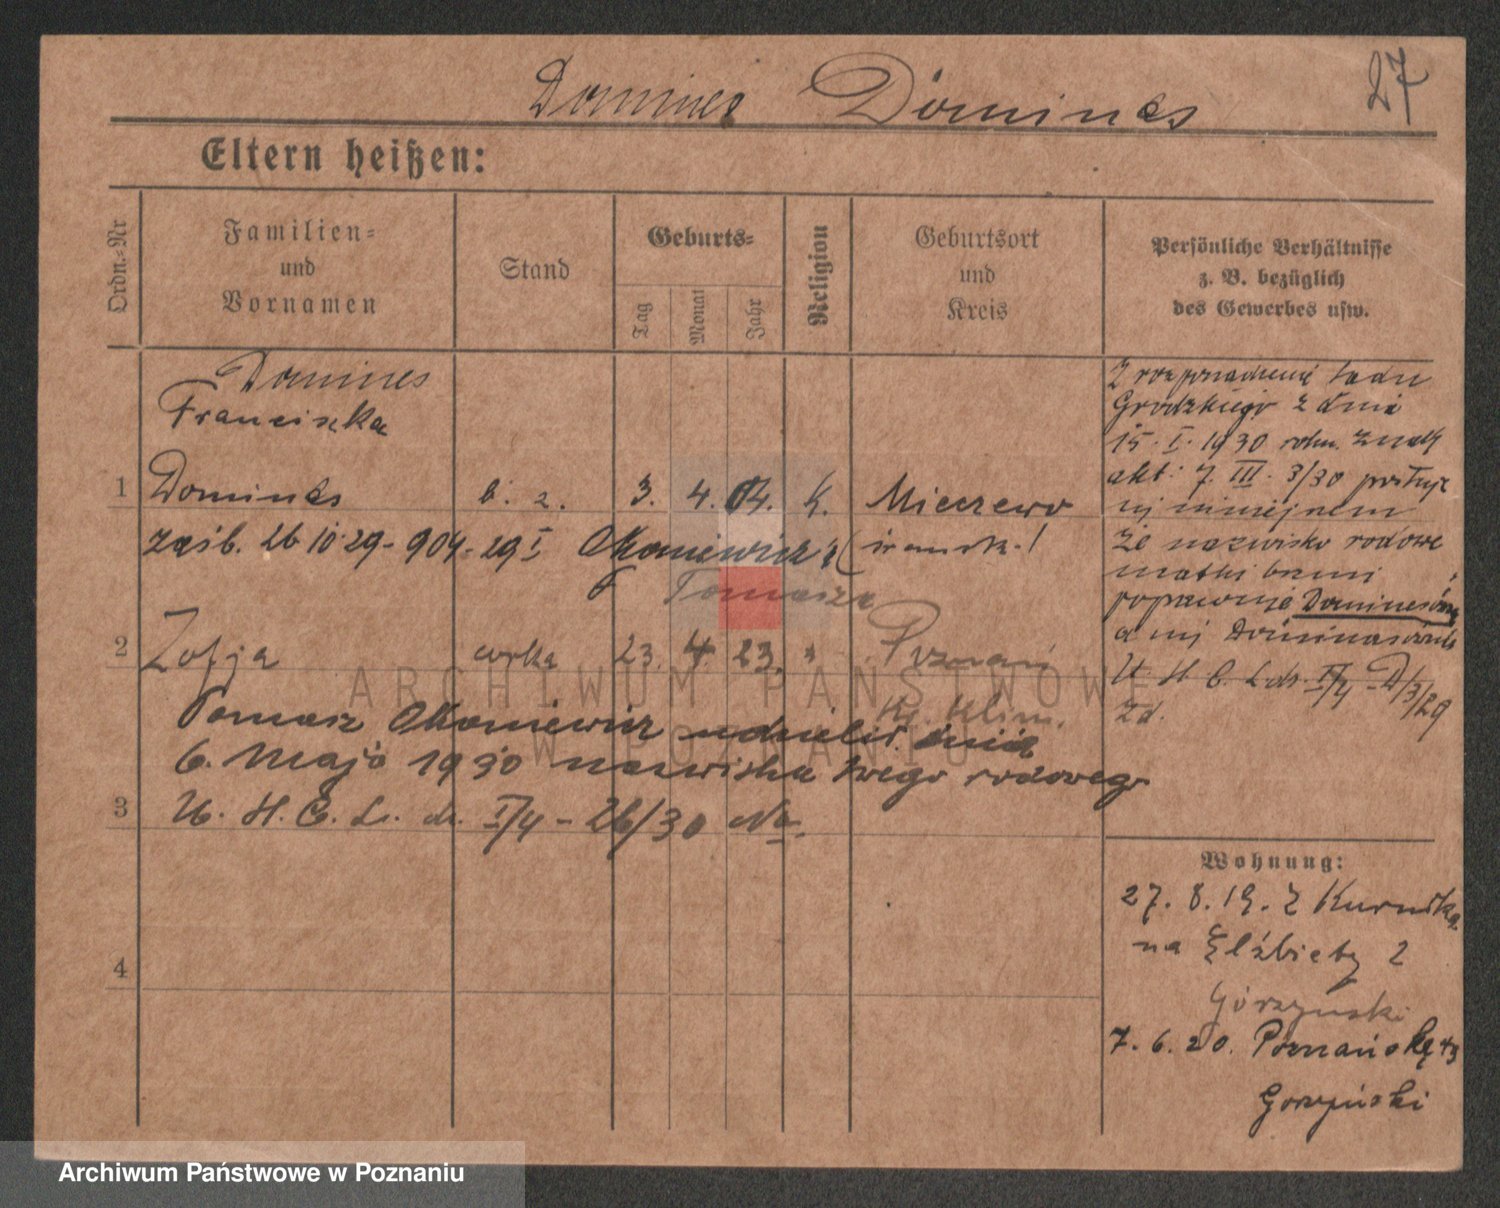 Domines Domines 27
Eltern heißen:
Ordn.-Nr
Familien-
und
Vornamen
Stand
Geburts-
Tag
Monat
Jahr
Religion
Geburtsort
und
Kreis
Persönliche Verhältnisse
z. B. bezüglich
des Gewerbes usw.
Domines
Franciszka
1 Domines b. z. 3. 4. 04. K. Mieczewo
zaśb. 26 10 29 - 904 - 29 I Okoniewicz
Tomasza
(śremsk.)
2 Zofja córka 23. 4. 23. " Poznań
Tomasz Okoniewicz udzielił dnia
6. Maja 1930 nazwiska swego rodowego
3 U. S. C. L. dz. I/4 - 26/30
4
Z rozporządzenia Sądu
Grodzkiego z dnia
15. I. 1930 roku znak
akt. 7. III. 3/30
że nazwisko rodowe
matki brzmi
poprawnie
a nie
U. S. C. L. dz. II/4
zd.
Wohnung:
27. 8. 19. z Kurnika
na Elżbiety 2
Górzyński
7. 6. 20. Poznańska 43
Gorzyński
ARCHIWUM PAŃSTWOWE
W POZNANIU
Archiwum Państwowe w Poznaniu